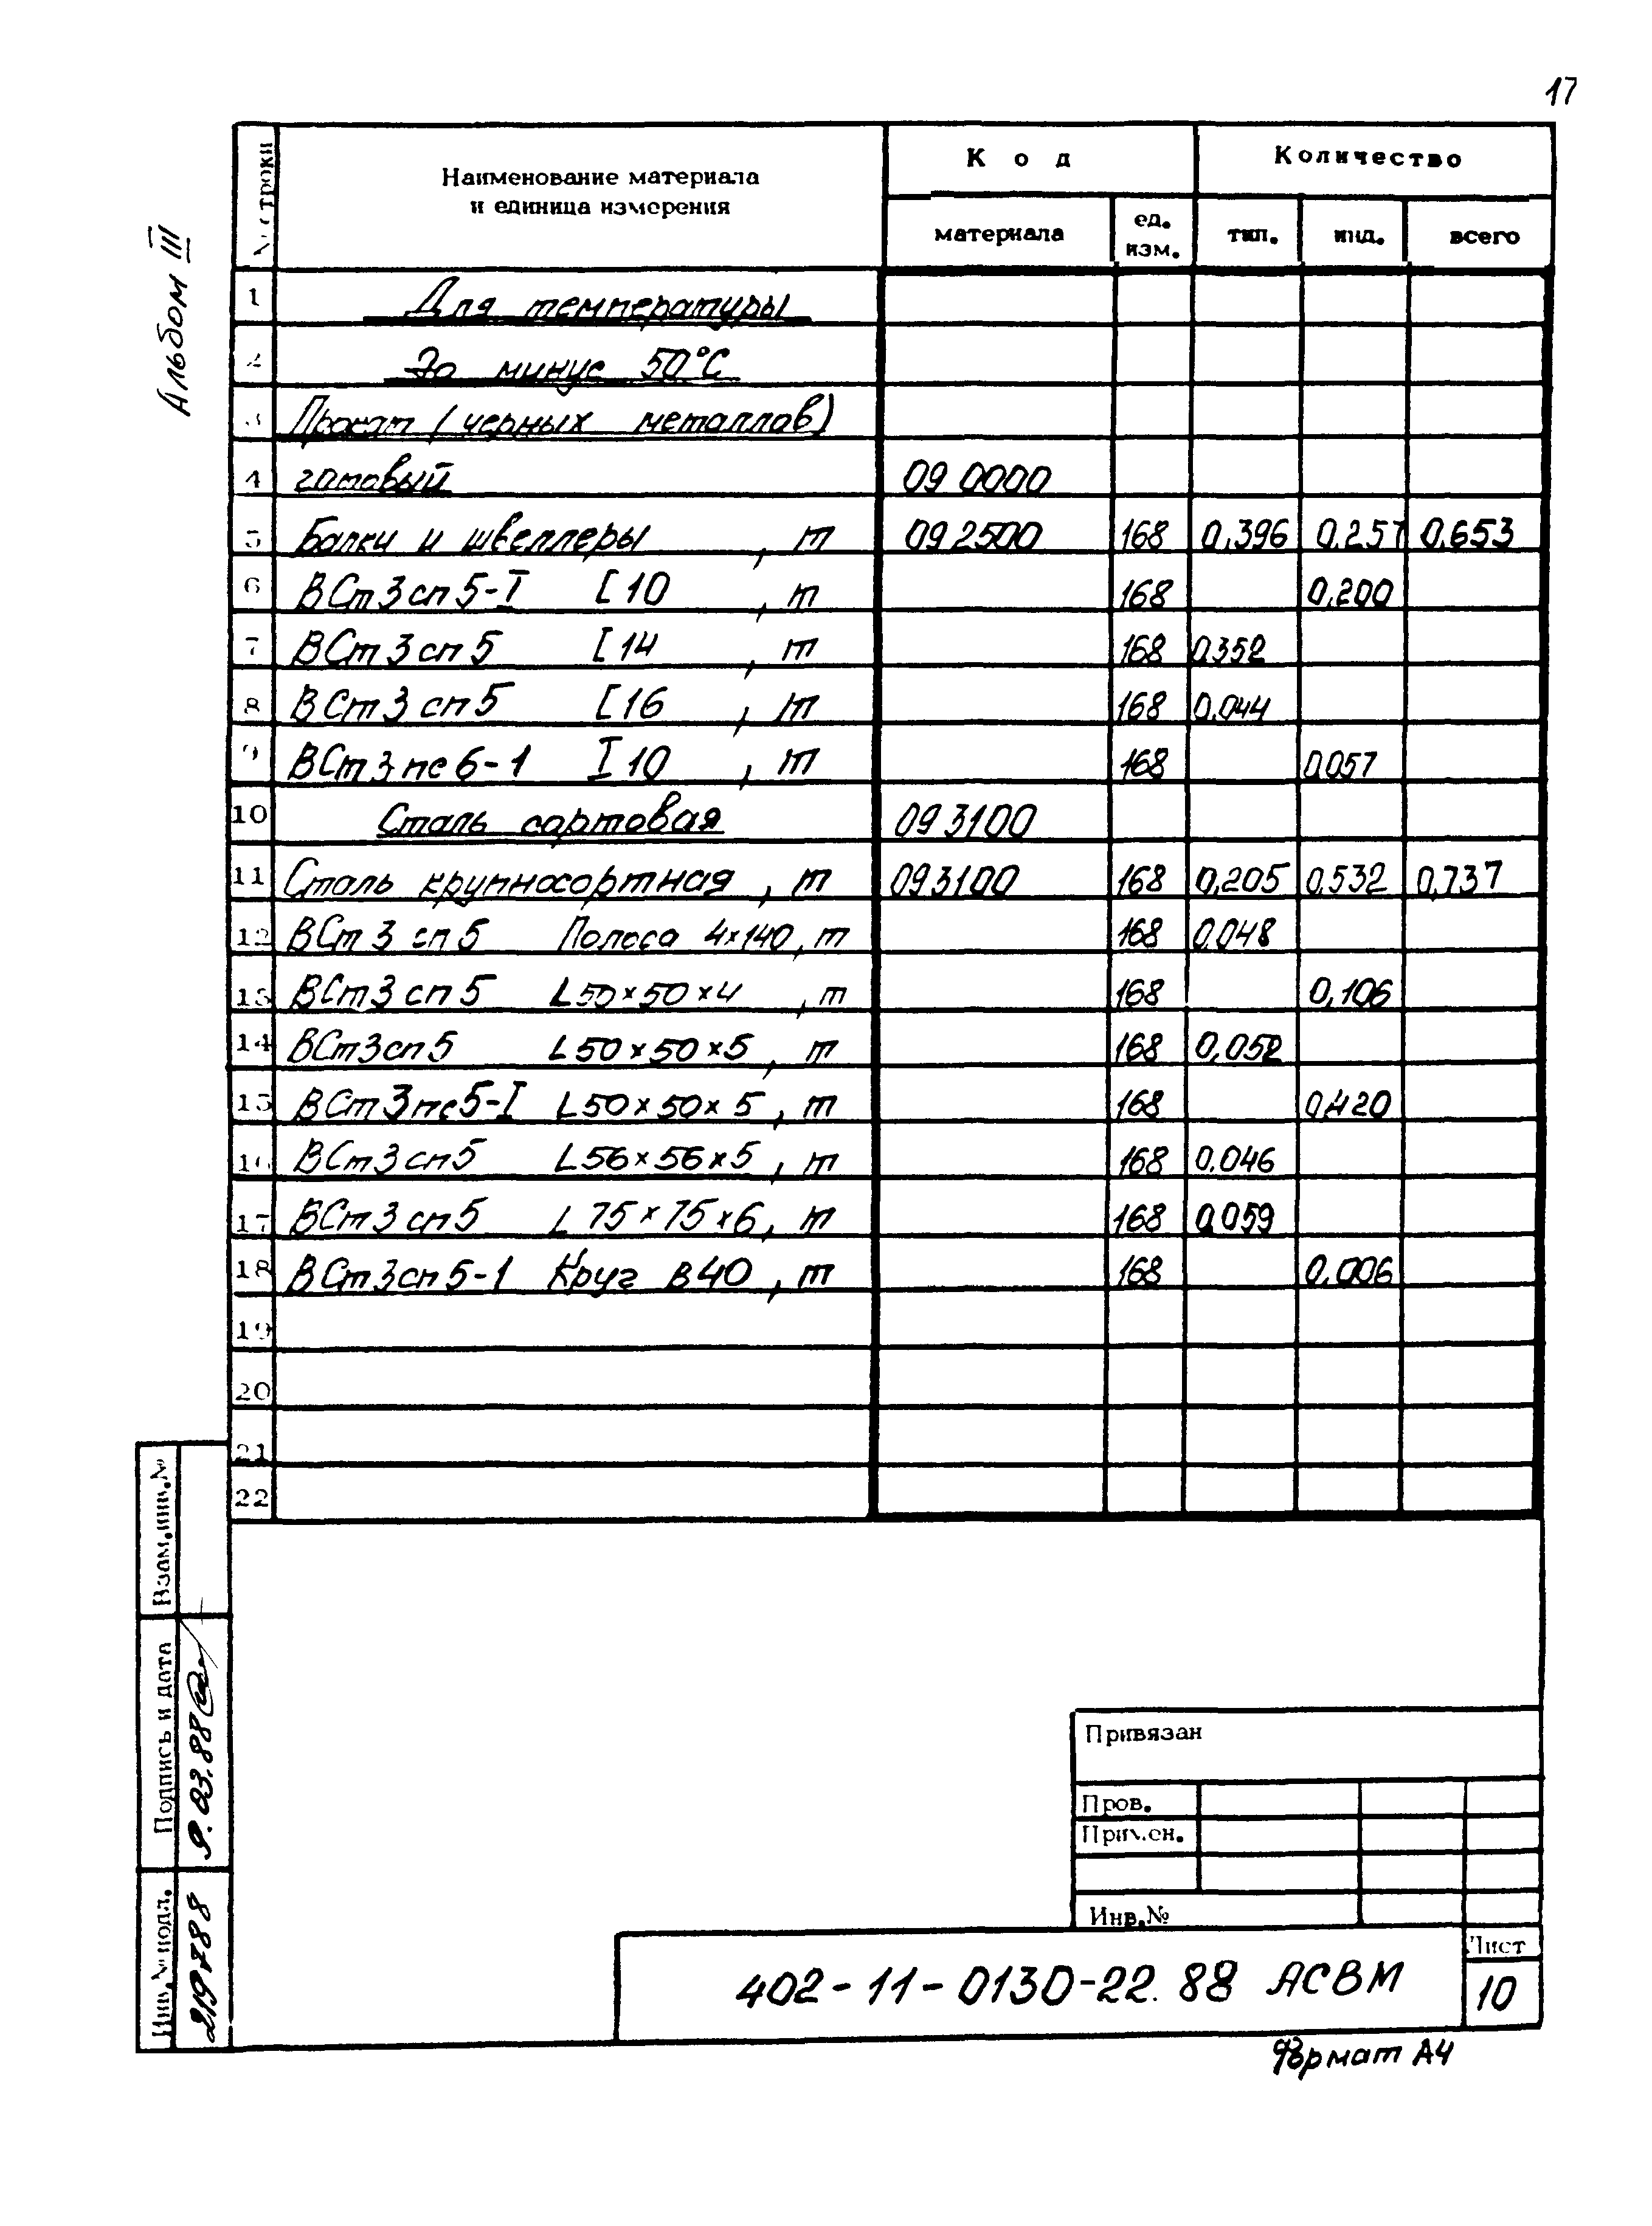 17
Альбом III
№ строки
Наименование материала
и единица измерения
Код
Количество
материала
ед.
изм.
тип.
инд.
всего
1 Для температуры
2 до минус 50°С
3 Прокат (черных металлов)
4 готовый 09 0000
5 Балки и швеллеры , т 09 2500 168 0,396 0.257 0.653
6 ВСт3сп5-I [10 , т 168 0,200
7 ВСт3сп5 [14 , т 168 0352
8 ВСт3сп5 [16 , т 168 0.044
9 ВСт3пс6-1 I10 , т 168 0,057
10 Сталь сортовая 093100
11 Сталь крупносортная , т 093100 168 0,205 0,532 0,737
12 ВСт3сп5 Полоса 4×140, т 168 0,048
13 ВСт3сп5 L50×50×4 , т 168 0,106
14 ВСт3сп5 L50×50×5 , т 168 0,052
15 ВСт3пс5-I L50×50×5 , т 168 0,420
16 ВСт3сп5 L56×56×5 , т 168 0.046
17 ВСт3сп5 L75×75×6, т 168 0,059
18 ВСт3сп5-1 Круг в40 , т 168 0,006
19
20
21
22
Взам.инв.№
Подпись и дата
9.03.88
Инв.№подл.
219788
Привязан
Пров.
Примен.
Инв.№
402-11-0130-22.88 АСВМ
Лист
10
Формат А4